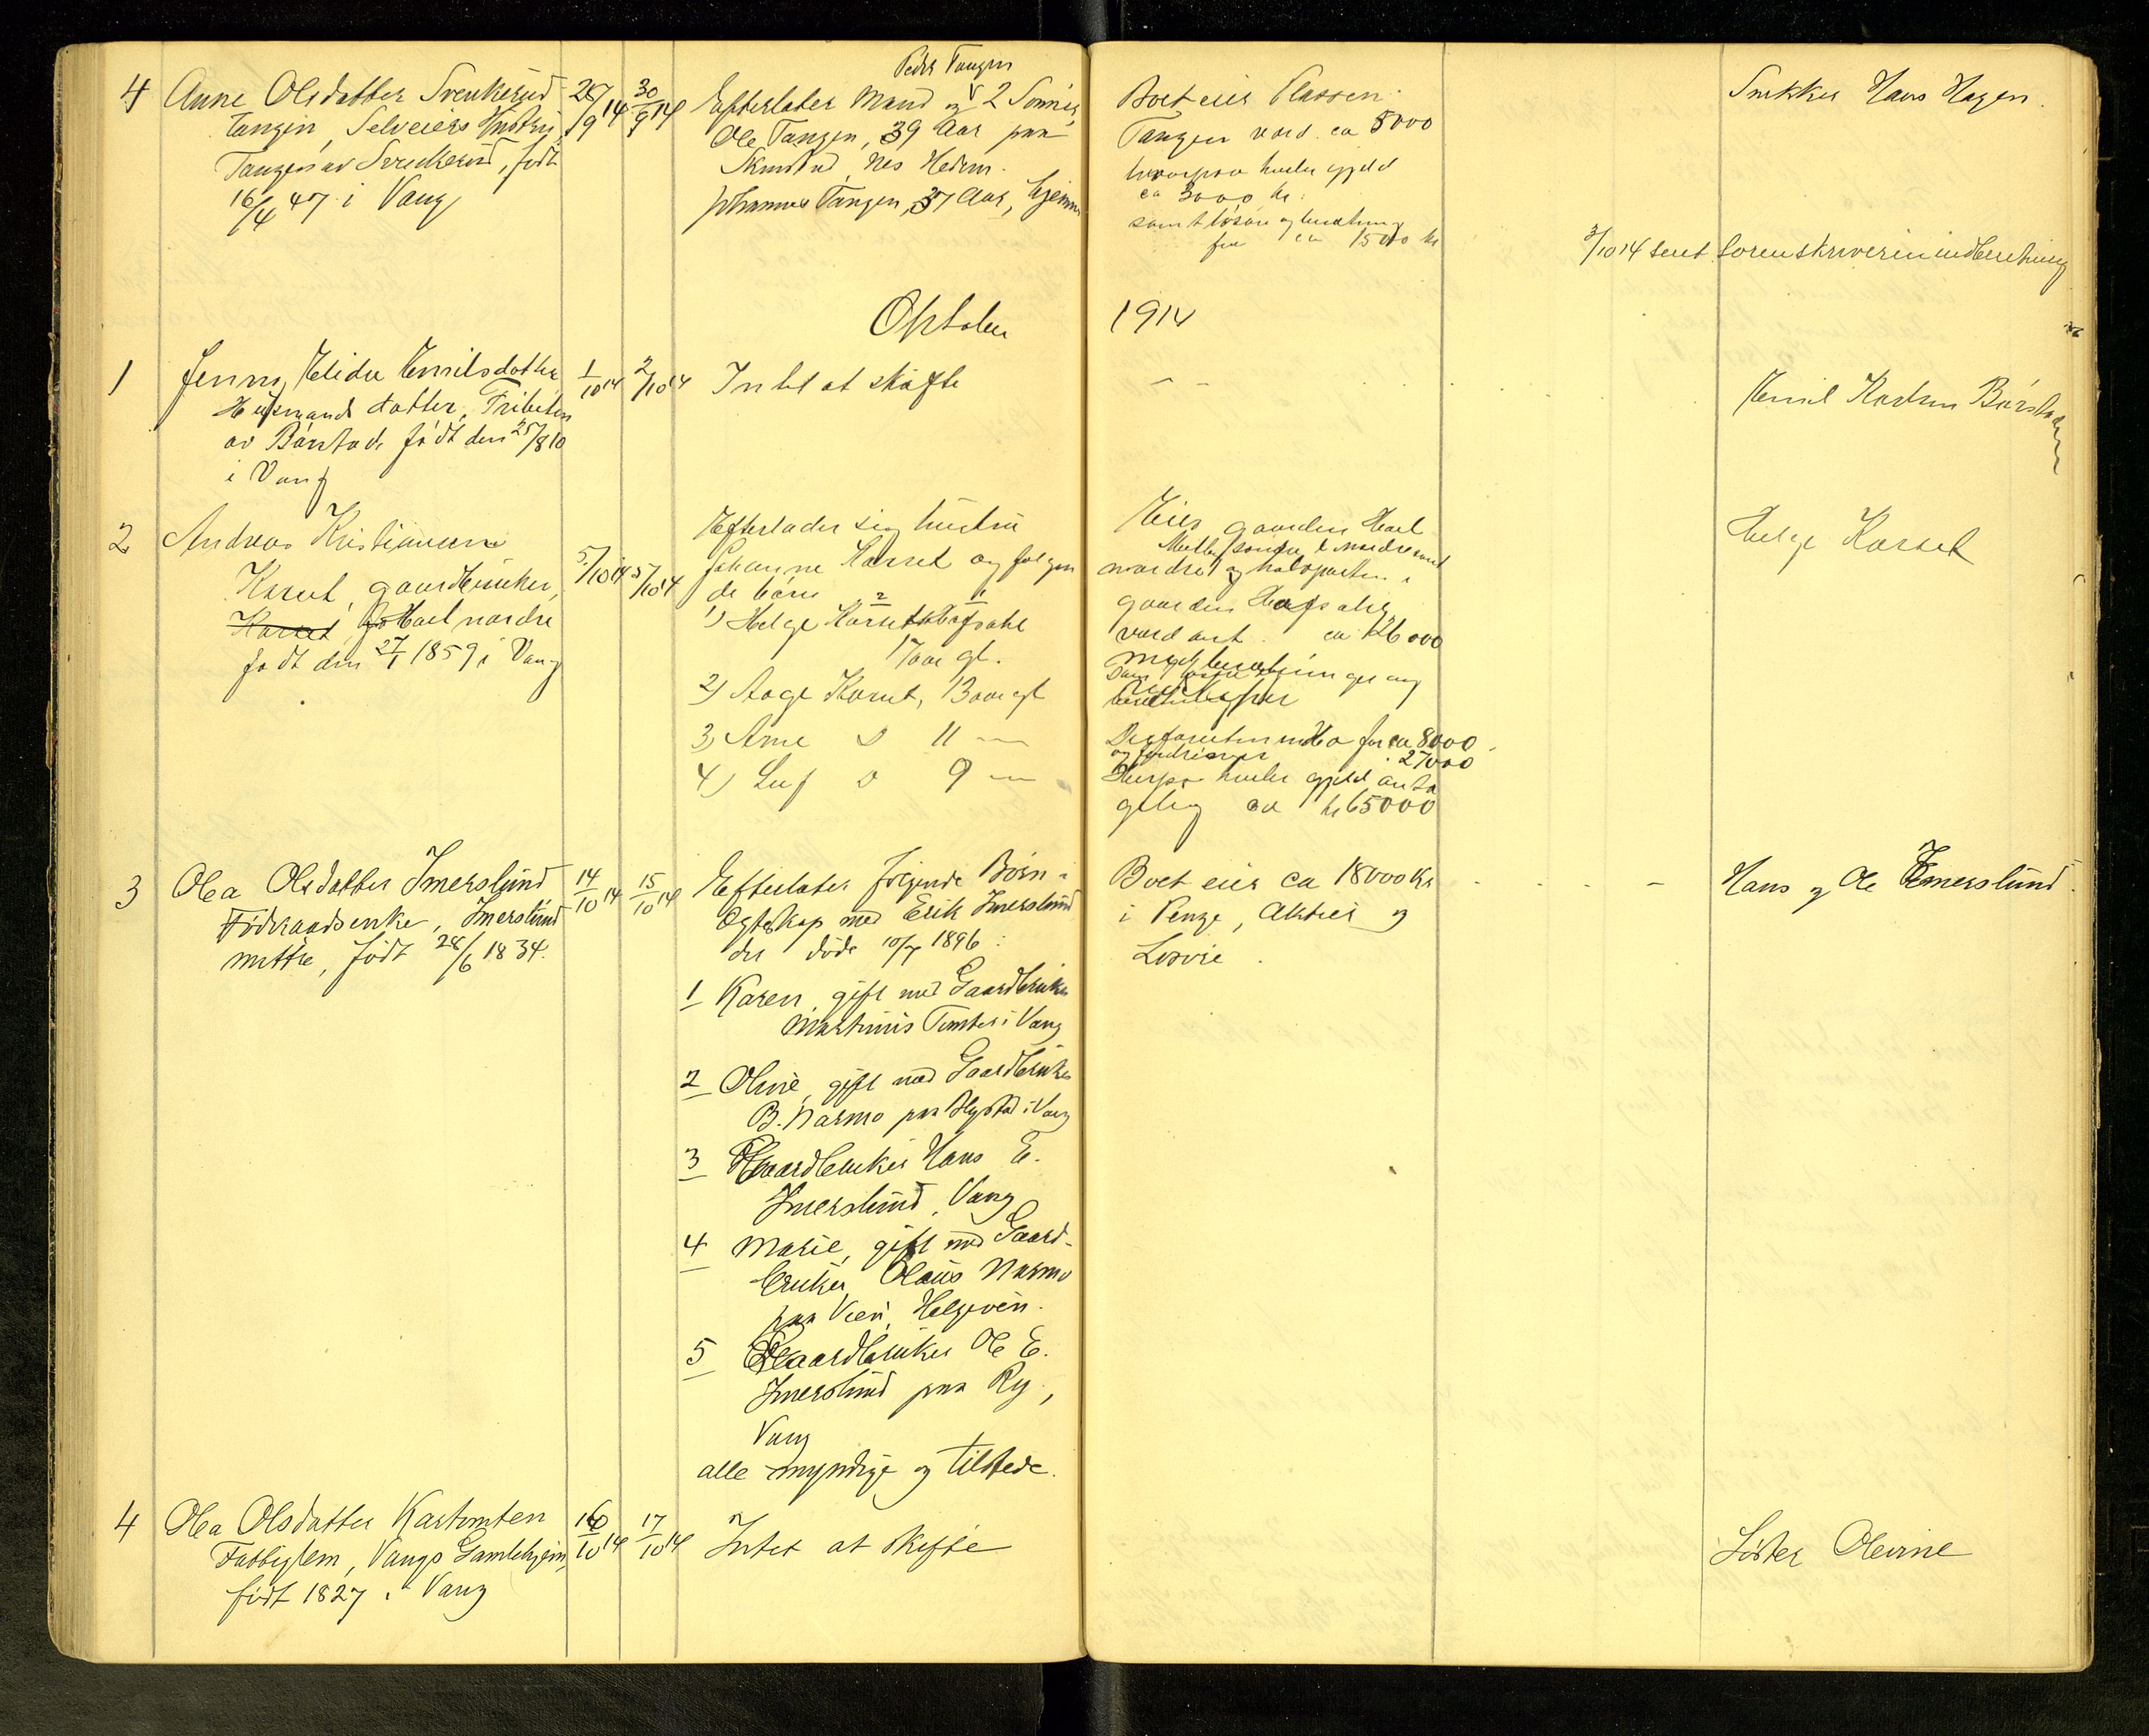 4 Anne Olsdatter Svenkerud 28/9 14 30/9 14
Tangen, Selveiers Hustru,
Tangen av Svenkerud, født
16/4 47 i Vang
Peder Tangen
Efterlater Mand og 2 Sønner,
Ole Tangen, 39 Aar paa
Skurstad, Nes Hedem.
Johannes Tangen, 37 Aar, hjemme
Boet eier Plassen
Tangen værd ca 5000
hvorpaa hviler gjeld
ca 3000 kr.
samt løsøre og besætning
for ca 1500 kr
Snekker Hans Hagen.
3/10 14 sent Sorenskriveren indberetning
Oktober 1914
1 Jenny Elida Emilsdatter 1/10 14 2/10 14 Intet at skifte
Husmands datter, Tributen
av Børstad, født den 25/8 10
i Vang
Emil Karlsen Børstad
2 Andreas Kristiansen 5/10 14 5/10 14
Korset, gaardbruker,
Korset, Hoel nordre
født den 27/1 1859 i Vang
Efterlader sig hustru
Johanne Korset og følgen
de børn
1) Helge Korset Hafsahl
17 aar gl.
2) Aage Korset, 13 aar gl
3) Arne D 11 —
4) Leif D 9 —
Eier gaarden Hoel
nordre og halvparten i
gaarden Hafsahl
værd ant. ca 126000
Desforuten ca 8000
og fordringer 27000
Herpaa hviler gjeld anta
gelig ca kr 65000
Helge Korset
3 Olea Olsdatter Imerslund 14/10 14 15/10 14
Føderaadsenke, Imerslund
mettre, født 28/6 1834.
Efterlater følgende Børn i
Egteskap med Erik Imerslund
der døde 10/7 1896:
1 Karen, gift med Gaardbruker
Martinius Tomter i Vang
2 Oline, gift med Gaardbruker
B. Narmo paa Flystad i Vang
3 Gaardbruker Hans E.
Imerslund, Vang
4 Marie, gift med Gaard-
bruker Olaus Narmo
paa Vien, Helgøen.
5 Gaardbruker Ole E.
Imerslund paa Ry,
Vang
alle myndige og tilstede.
Boet eier ca 18000 Kr
i Penge, Aktier og
Løsøre.
Hans og Ole Imerslund.
4 Olea Olsdatter Kartomten 16/10 14 17/10 14 Intet at skifte
Fattiglem, Vangs Gamlehjem,
født 1827 i Vang
Søster Olevine